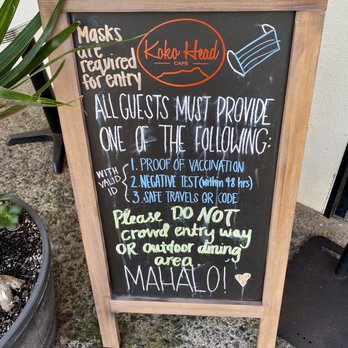 Masks
are
required
for entry
Koko Head
CAFE
ALL GUESTS MUST PROVIDE
ONE OF THE FOLLOWING:
WITH
VALID
ID
1. PROOF OF VACCINATION
2. NEGATIVE TEST (within 48 hrs)
3. SAFE TRAVELS QR CODE
Please DO NOT
crowd entry way
OR outdoor dining
area.
MAHALO!